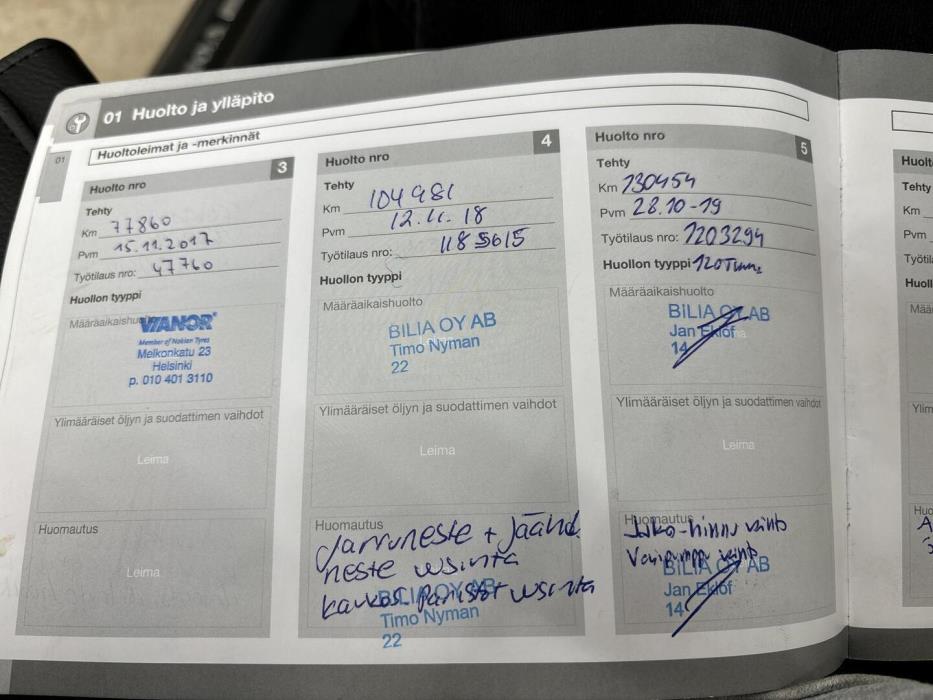 01 Huolto ja ylläpito
Huoltoleimat ja -merkinnät
01
Huolto nro 3
Tehty
Km 77860
Pvm 15.11.2017
Työtilaus nro: 47760
Huollon tyyppi
Määräaikaishuolto
VIANOR
Member of Nokian Tyres
Melkonkatu 23
Helsinki
p. 010 401 3110
Ylimääräiset öljyn ja suodattimen vaihdot
Leima
Huomautus
Leima
Huolto nro 4
Tehty
Km 104981
Pvm 12.11.18
Työtilaus nro: 1185615
Huollon tyyppi
Määräaikaishuolto
BILIA OY AB
Timo Nyman
22
Ylimääräiset öljyn ja suodattimen vaihdot
Leima
Huomautus
Jarruneste + Jäähd.
neste usinta
kaukos. paristot usinta
BILIA OY AB
Timo Nyman
22
Huolto nro 5
Tehty
Km 130454
Pvm 28.10-19
Työtilaus nro: 1203294
Huollon tyyppi 120
Määräaikaishuolto
BILIA OY AB
Jan Eklöf
14
Ylimääräiset öljyn ja suodattimen vaihdot
Leima
Huomautus
Jako-hinnu vaihto
vaihto
BILIA OY AB
Jan Eklöf
14
Huolt
Tehty
Km
Pvm
Työtil
Huoll
Mää
Ylim
Huo